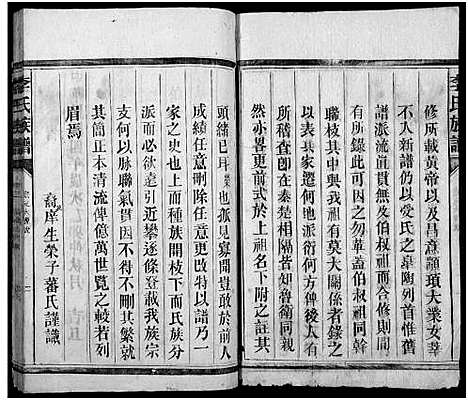 李氏族譜
修所載黃帝以及昌意顓頊大業女莘
不入新譜仍以受氏之皋陶列首惟舊
譜派流直衍無及伯叔祖而合修則間
有所錄此可因之勿華蓋伯叔祖同幹
聯枝其中與我祖有莫大關係者錄之
以表其家遷何地派衍何方俾後人有
稽查卽在秦楚相隔者知魯衛同宗
然亦畧更前式於上祖名下附之註有
頭緒已耳榮也孤見寡聞豈敢於前人
成績任意刪除大端任意更改特以譜乃一
家之史也上而種族開枝下而氏族分
派而必欲遠引近攀逐條登載我族宗
支何以脉聯氣貫因不得不刪其繁就
其簡正本清流俾億萬世覧之較若列
眉焉
裔庠生榮子蕃氏謹識
李氏族譜